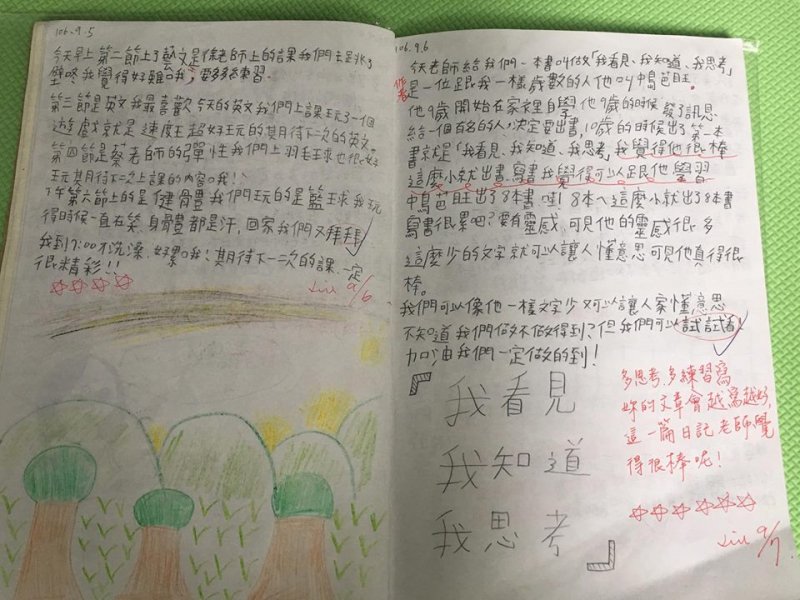 106.9.5
今天早上第二節上了藝文是徐老師上的課我們去是挑了
壁咚我覺得好難ㄛ我,要多多練習.
第三節是英文我最喜歡今天的英文我們上課玩了一個
遊戲就是速度王超好玩的其期待下次的英文。
第四節是蔡老師的彈性我們上羽毛球也很好
玩其期待下次上課的內容ㄛ我!
下午第六節上的是健骨豊我們玩的是籃球我玩
得時候一直在笑,身骨豊都是汗,回家我們又拜拜
我到7:00才洗澡,好累ㄛ我!其期待下一次的課,一定
很精彩!!
☆☆☆☆
Liu 9/6
106.9.6
今天老師給我們一本書叫做「我看見、我知道、我思考」
作者
是一位跟我一樣歲數的人他叫中島芭旺。
他9歲開始在家裡自學他9歲的時候發了訊息
給一個百名的人,決定要出書,10歲的時候出了第一本
書就是「我看見、我知道、我思考」我覺得他很棒
這麼小就出書,寫書我覺得可以足跟他學習
中島芭旺出了8本書哇!8本ㄟ這麼小就出了8本書
寫書很累吧?要有靈感,可見他的靈感很多
這麼少的文字就可以讓人懂意思可見他真得很
棒。
我們可以像他一樣文字少又可以讓人家懂意思
不知道我們做ㄉ不做得到?但我們可以試試看!
加油我們一定做的到!
『我看見
我知道
我思考』
多思考、多練習寫
妳的文章會越寫越好,
這一篇日記老師覺
得很棒呢!
☆☆☆☆☆☆
Liu 9/7